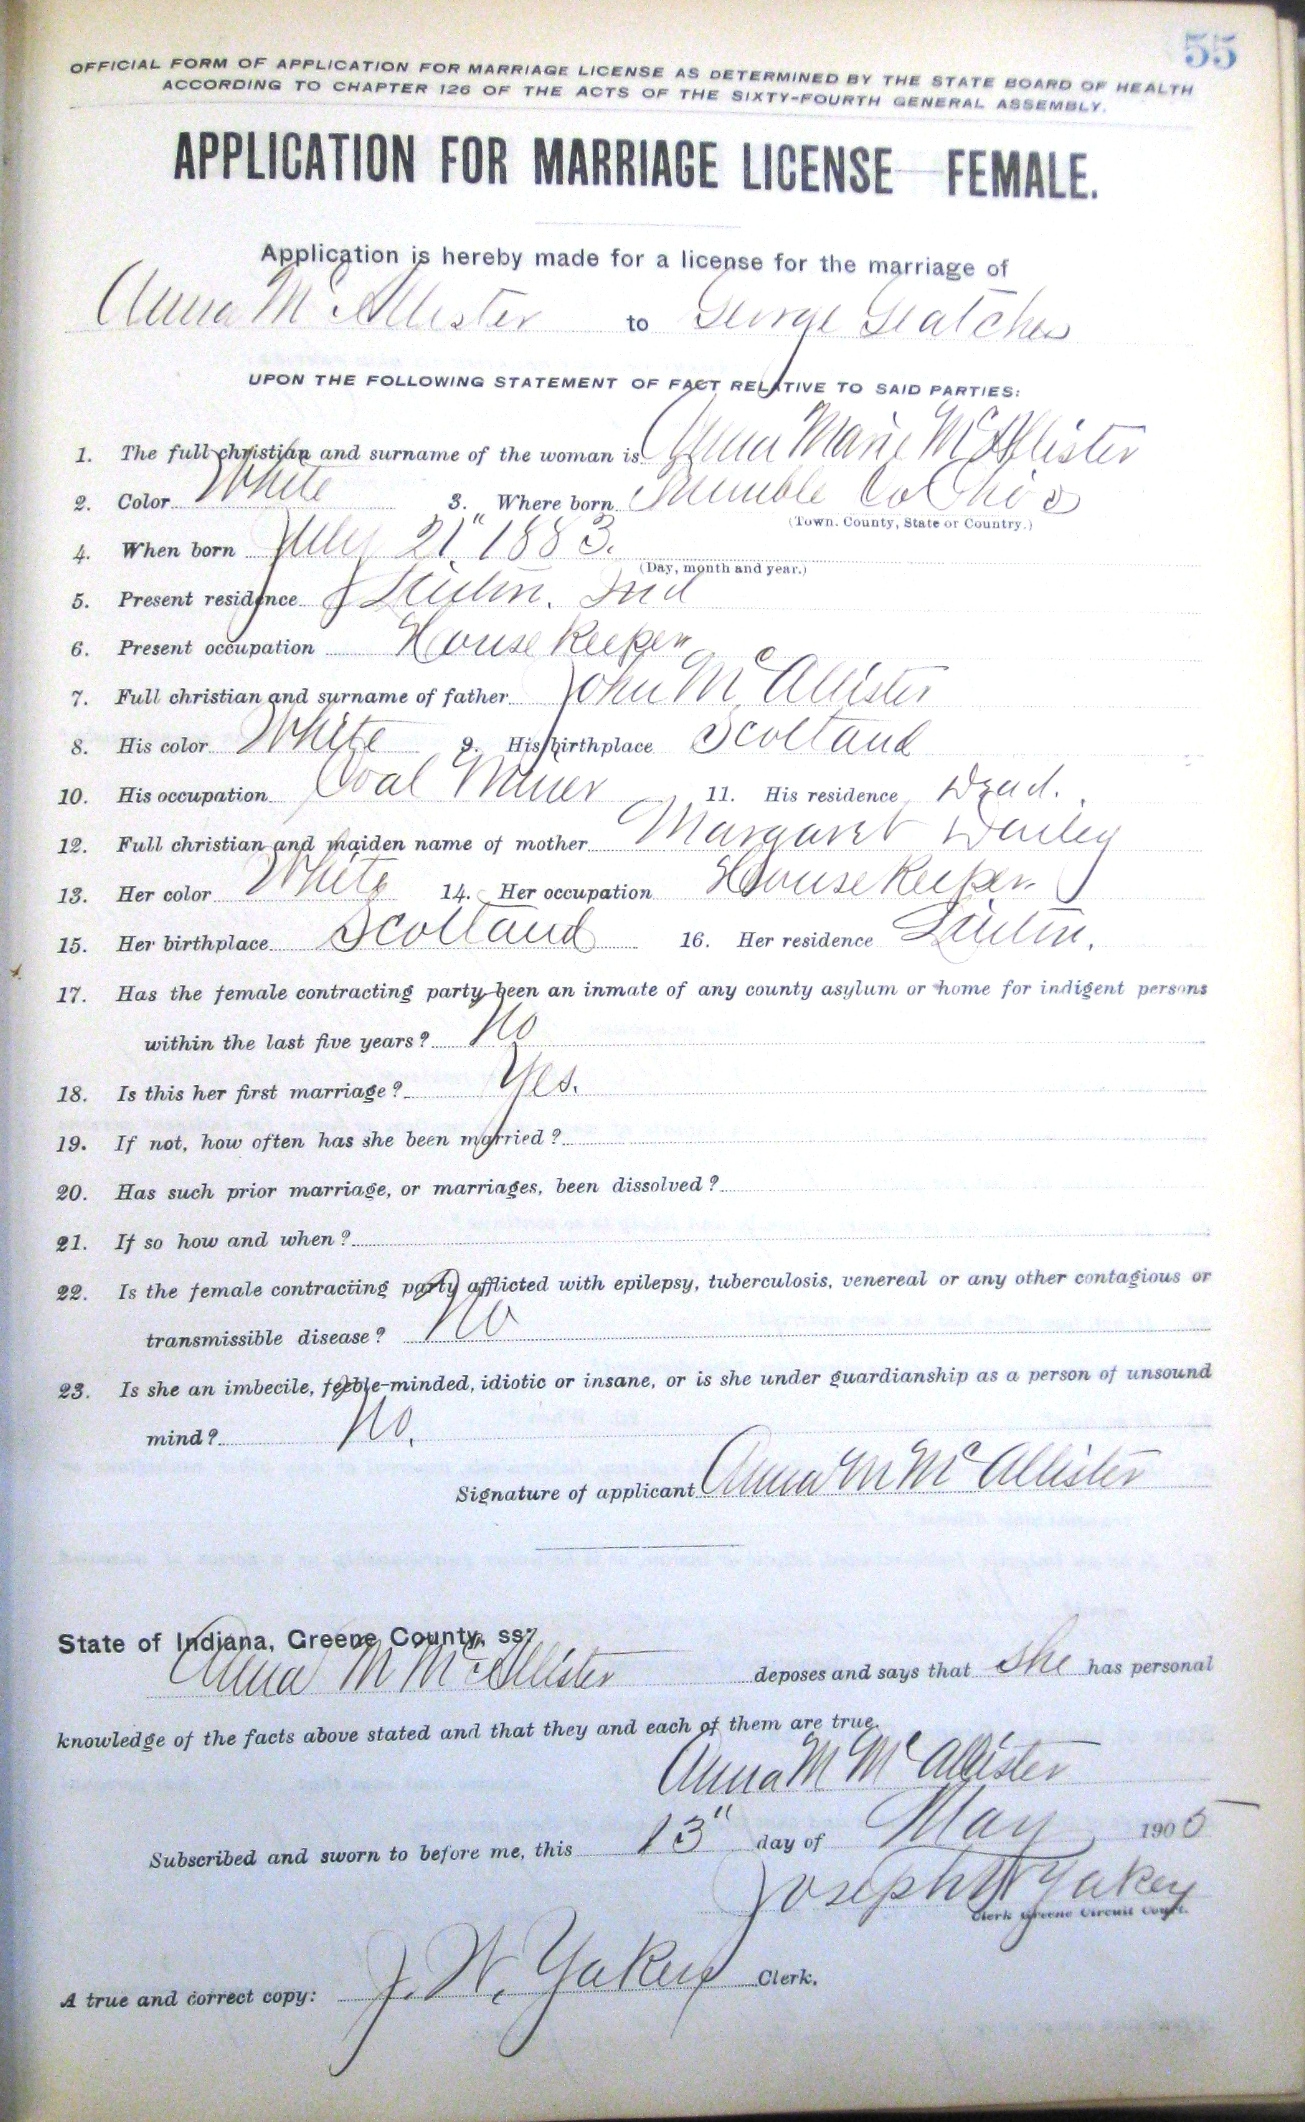 55
OFFICIAL FORM OF APPLICATION FOR MARRIAGE LICENSE AS DETERMINED BY THE STATE BOARD OF HEALTH
ACCORDING TO CHAPTER 126 OF THE ACTS OF THE SIXTY-FOURTH GENERAL ASSEMBLY.
APPLICATION FOR MARRIAGE LICENSE FEMALE.
Application is hereby made for a license for the marriage of
Anna McAllister to George
UPON THE FOLLOWING STATEMENT OF FACT RELATIVE TO SAID PARTIES:
1. The full christian and surname of the woman is Anna Marie McAllister
2. Color White 3. Where born Trumble Co Ohio
(Town. County, State or Country.)
4. When born July 21" 1883.
(Day, month and year.)
5. Present residence Linton. Ind
6. Present occupation House Keeper
7. Full christian and surname of father John McAllister
8. His color White 9. His birthplace Scotland
10. His occupation Coal Miner 11. His residence Dead.
12. Full christian and maiden name of mother Margaret
13. Her color White 14. Her occupation House Keeper
15. Her birthplace Scotland 16. Her residence Linton.
17. Has the female contracting party been an inmate of any county asylum or home for indigent persons
within the last five years? No
18. Is this her first marriage? Yes.
19. If not, how often has she been married?
20. Has such prior marriage, or marriages, been dissolved?
21. If so how and when?
22. Is the female contracting party afflicted with epilepsy, tuberculosis, venereal or any other contagious or
transmissible disease? No
23. Is she an imbecile, feeble-minded, idiotic or insane, or is she under guardianship as a person of unsound
mind? No.
Signature of applicant Anna M McAllister
State of Indiana, Greene County, ss:
Anna M McAllister deposes and says that she has personal
knowledge of the facts above stated and that they and each of them are true.
Anna M McAllister
Subscribed and sworn to before me, this 13" day of May 1905
Joseph W Yakey
Clerk Greene Circuit Court.
A true and correct copy: J. W. Yakey Clerk.